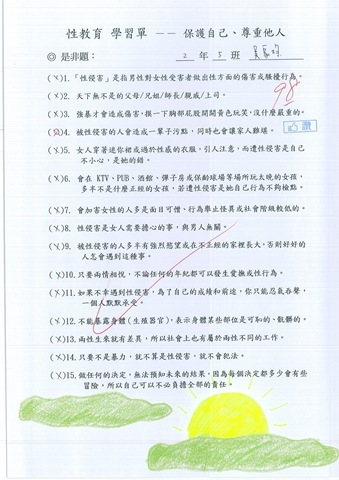 性教育 學習單 －－ 保護自己、尊重他人
◎ 是非題： 2 年 5 班
98
(×)1.「性侵害」是指男性對女性受害者做出性方面的傷害或騷擾行為。
(×)2. 天下無不是的父母/兄姐/師長/親戚/上司。
(×)3. 強暴才會造成傷害，摸一下胸部屁股開開黃色玩笑，沒什麼嚴重的。
(×)4. 被性侵害的人會造成一輩子污點，同時也會讓家人難堪。
(×)5. 女人穿著迷你裙或過於性感的衣服，引人注意，而遭性侵害是自己
不小心，是她的錯。
(×)6. 會在 KTV、PUB、酒館、彈子房或保齡球場等場所玩太晚的女孩，
多半不是什麼正經的女孩，若遭性侵害是她自己行為不夠檢點。
(×)7. 會加害女性的人多是面目可憎、行為舉止怪異或社會階級較低的。
(×)8. 性侵害是女人需要擔心的事，與男人無關。
(×)9. 被性侵害的人多半有強烈慾望或在不正經的家裡長大，否則好好的
人怎會遇到這種事。
(×)10. 只要兩情相悅，不論任何的年紀都可以發生愛撫或性行為。
(×)11. 如果不幸遇到性侵害，為了自己的成績和前途，你只能忍氣吞聲，
一個人默默承受。
(×)12. 不能暴露身體(生殖器官)，表示身體某些部位是可恥的、骯髒的。
(×)13. 兩性生來就有差異，所以社會上也有屬於兩性不同的工作。
(×)14. 只要不是暴力，就不算是性侵害，就不會犯法。
(×)15. 做任何的決定，無法預知未來的結果，因為每個決定都多少會有些
冒險，所以自己可以不必負擔全部的責任。